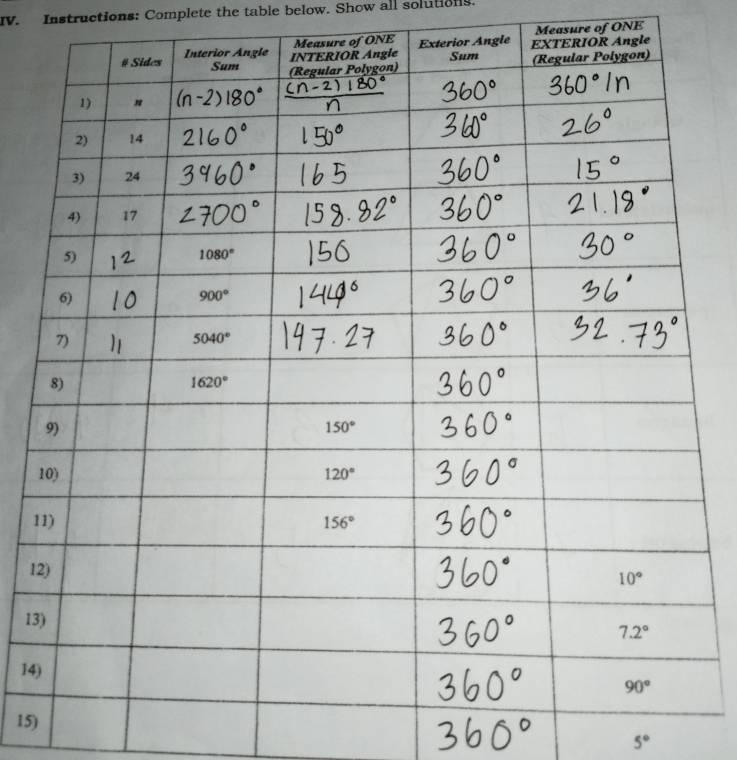 IV. Instructions: Complete the table below. Show all solutions.
# Sides Interior Angle Sum Measure of ONE INTERIOR Angle (Regular Polygon) Exterior Angle Sum Measure of ONE EXTERIOR Angle (Regular Polygon)
1) n (n-2)180° (n-2)180°/n 360° 360°/n
2) 14 2160° 150° 360° 26°
3) 24 3960° 165 360° 15°
4) 17 2700° 158.82° 360° 21.18°
5) 12 1080° 150 360° 30°
6) 10 900° 144° 360° 36°
7) 11 5040° 147.27 360° 32.73°
8) 1620° 360°
9) 150° 360°
10) 120° 360°
11) 156° 360°
12) 360° 10°
13) 360° 7.2°
14) 360° 90°
15) 360° 5°